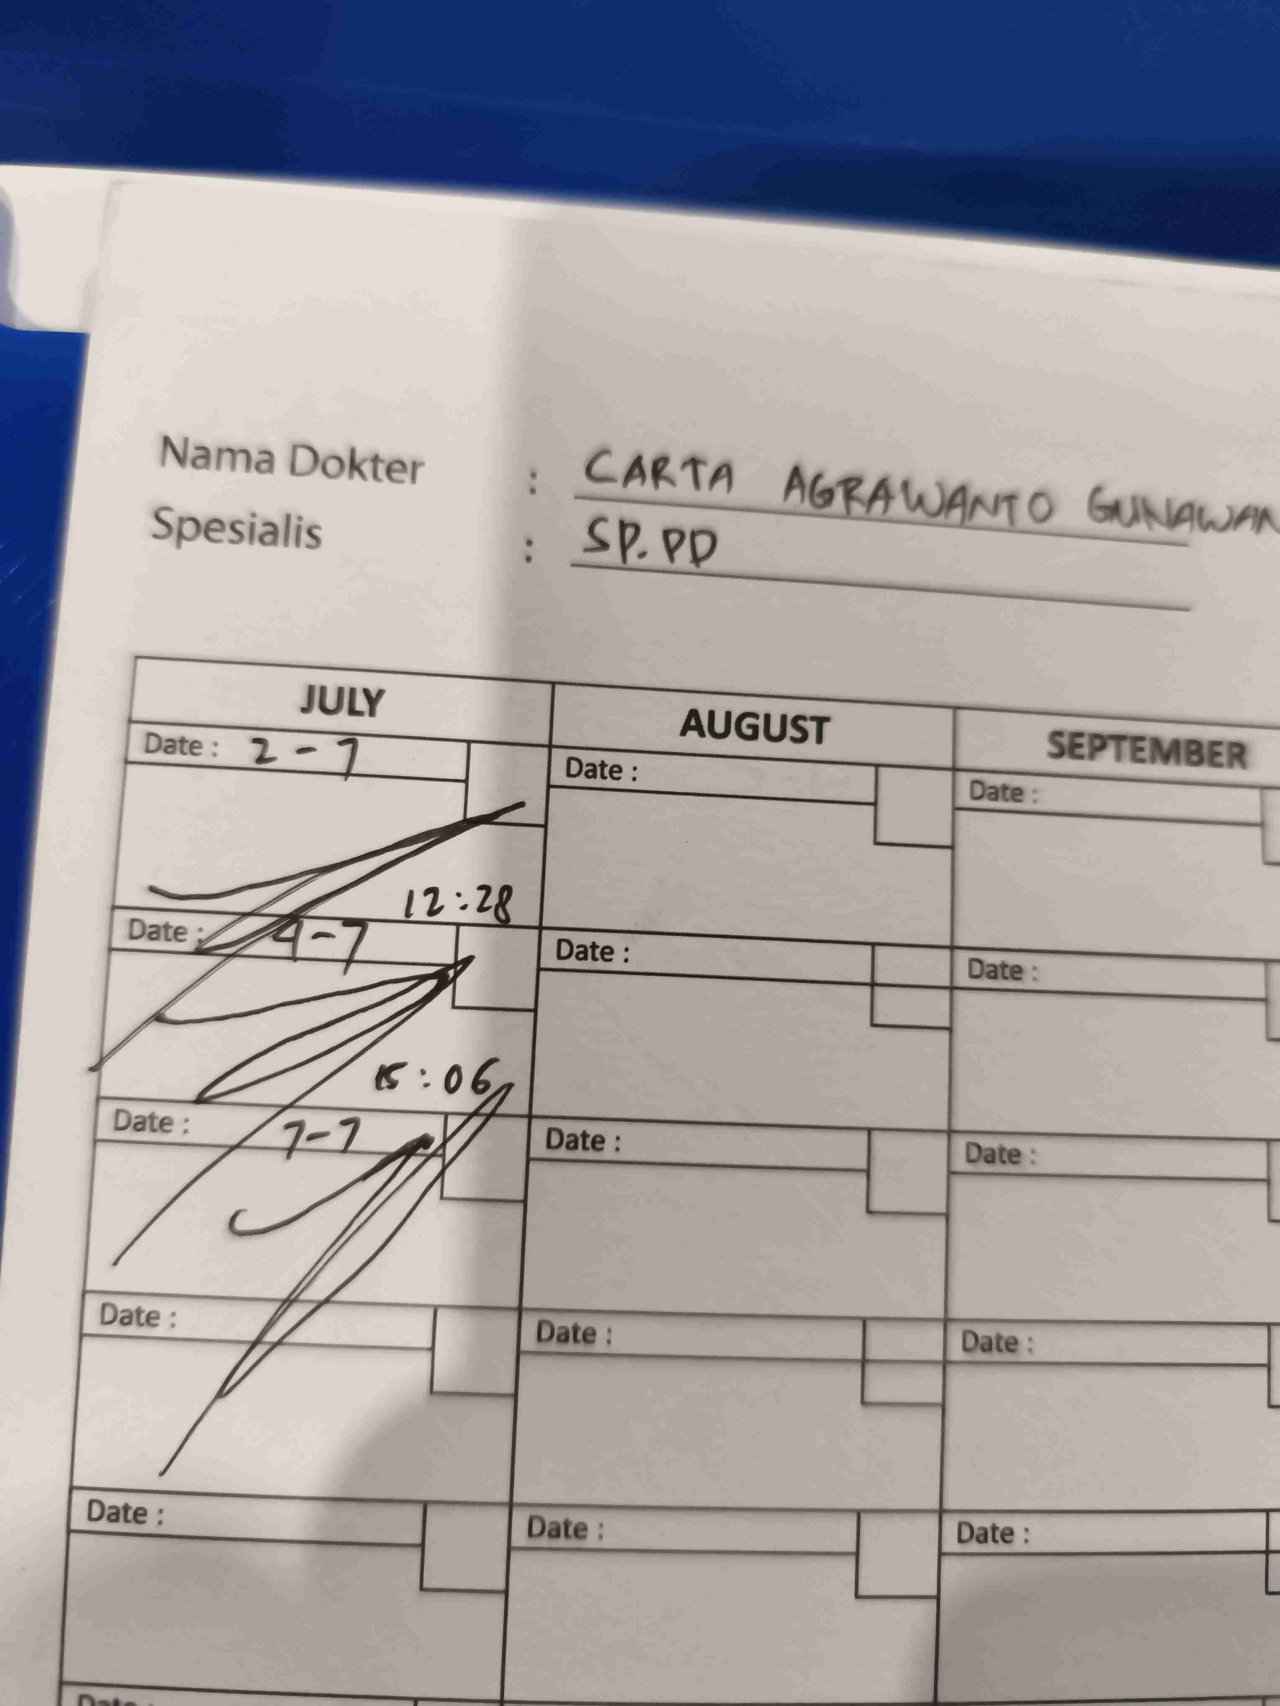 Nama Dokter : CARTA AGRAWANTO GUNAWAN
Spesialis : SP.PD
JULY AUGUST SEPTEMBER
Date : 2-7 Date : Date :
12:28
Date : 4-7 Date : Date :
15:06
Date : 7-7 Date : Date :
Date : Date : Date :
Date : Date : Date :
Date :